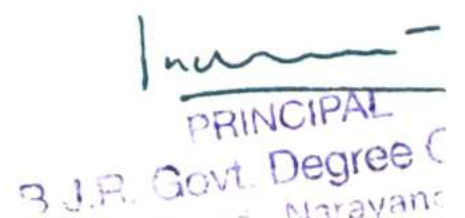 PRINCIPAL
B.J.R. Govt. Degree C
Narayan